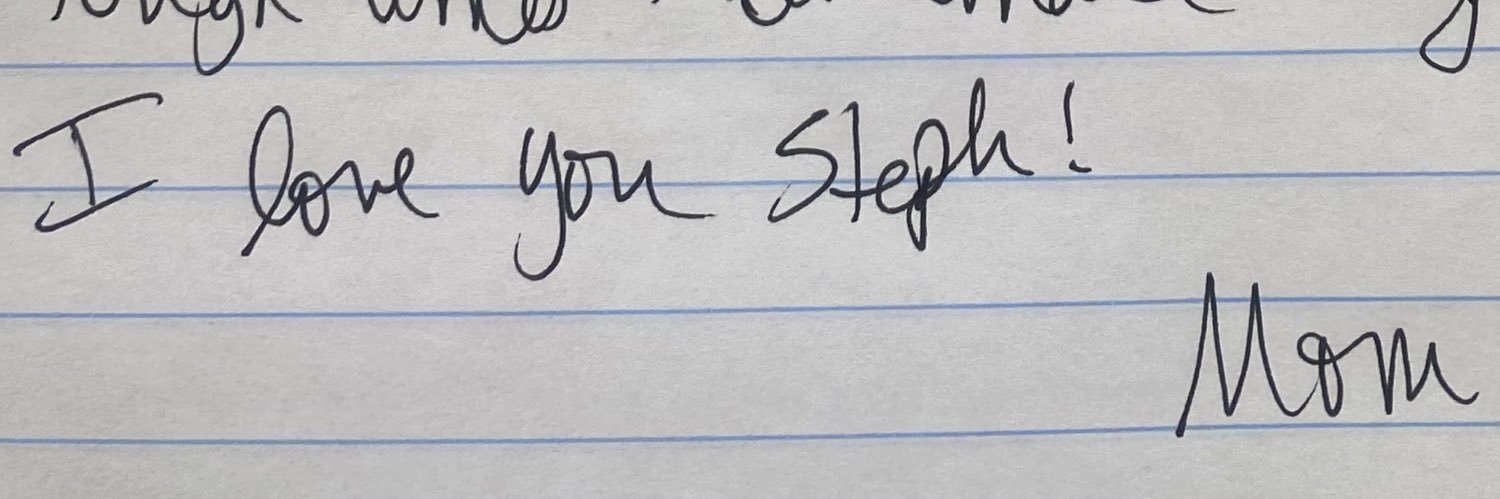 I love you Steph!
Mom